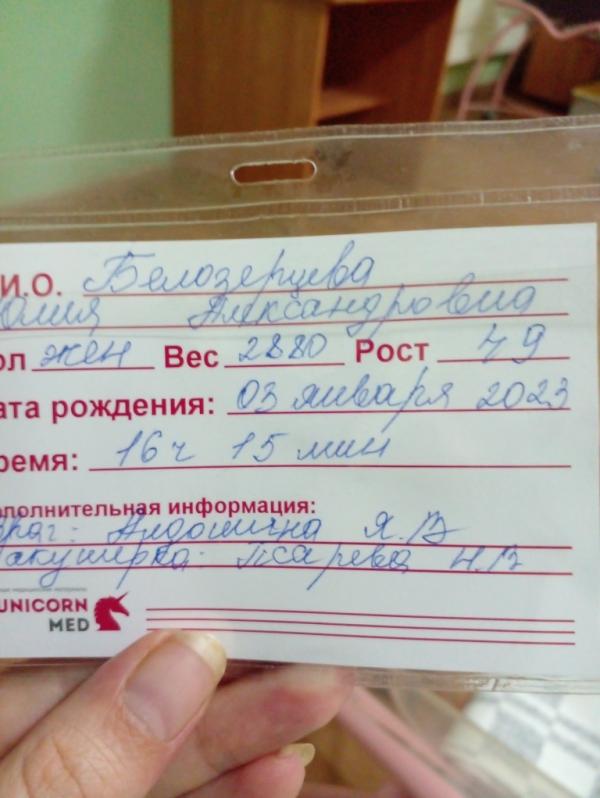 И.О. Белозерцева
Юлия Александровна
ол жен Вес 2880 Рост 49
ата рождения: 03 января 2023
ремя: 16ч 15 мин
ополнительная информация:
врач: Алдошина Я.В
акушерка: Псарева Н.В
UNICORN
MED